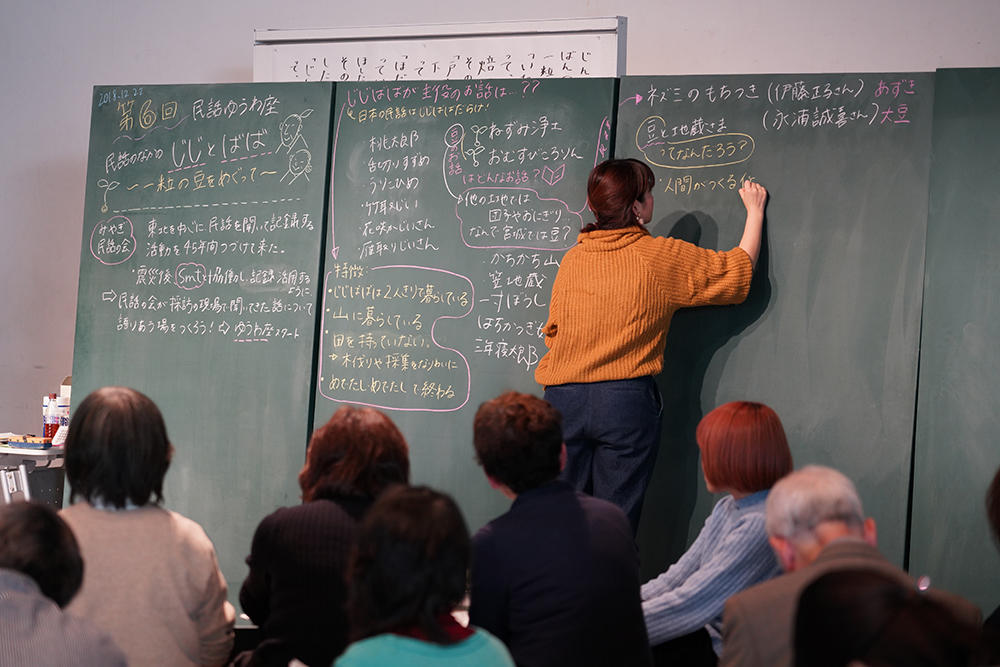 2018.12.22
第6回 民話ゆうわ座
民話のなかの じじとばば
〜一粒の豆をめぐって〜
みやぎ
民話の会
東北を中心に 民話を聞いて記録する
活動を45年間つづけて来た。
・震災後 smtと協働し、記録・活用する
ように
⇨民話の会が採訪の現場で聞いてきた話について
語りあう場をつくろう! ⇨ ゆうわ座スタート
じじばばが主役のお話は…??
日本の民話はじじばばだらけ!
桃太郎
舌切りすずめ
うりこひめ
竹取じい
花咲かじいさん
雁取りじいさん
特徴:
・じじばばは2人きりで暮らしている
・山に暮らしている
・田を持っていない。
→木伐りや採集をなりわいに
・めでたし・めでたしで終わる
豆のお話
ねずみ浄土
おむすびころりん
はどんなお話?
他の土地では
団子やおにぎり…
なんで宮城では豆?
かちかち山
笠地蔵
一寸ぼうし
はちかつぎ
三年寝太郎
ネズミのもちつき (伊藤正子さん) あずき
(永浦誠喜さん) 大豆
豆と地蔵さま
ってなんだろう?
・人間がつくる